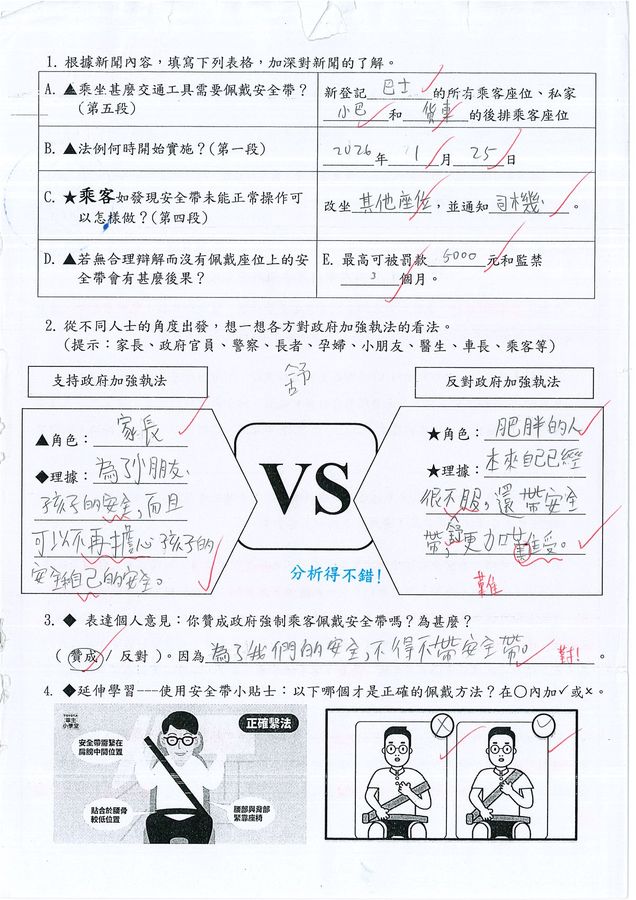 1. 根據新聞內容，填寫下列表格，加深對新聞的了解。
A. ▲乘坐甚麼交通工具需要佩戴安全帶？
(第五段)
新登記 巴士 的所有乘客座位、私家
小巴 和 貨車 的後排乘客座位
B. ▲法例何時開始實施？(第一段)
2026 年 1 月 25 日
C. ★乘客如發現安全帶未能正常操作可
以怎樣做？(第四段)
改坐 其他座位，並通知 司機 。
D. ▲若無合理辯解而沒有佩戴座位上的安
全帶會有甚麼後果？
E. 最高可被罰款 5000 元和監禁
3 個月。
2. 從不同人士的角度出發，想一想各方對政府加強執法的看法。
(提示：家長、政府官員、警察、長者、孕婦、小朋友、醫生、車長、乘客等)
舒
支持政府加強執法
▲角色： 家長
◆理據： 為了小朋友、
孩子的安全，而且
可以不再擔心孩子的
安全和自己的安全。
VS
分析得不錯!
反對政府加強執法
★角色： 肥胖的人
★理據： 本來自己已經
很不服，還帶安全
帶，更加難受。
舒
難
3. ◆ 表達個人意見：你贊成政府強制乘客佩戴安全帶嗎？為甚麼？
( 贊成 / 反對 )。因為 為了我們的安全，不得不帶安全帶。 。
對!
4. ◆延伸學習---使用安全帶小貼士：以下哪個才是正確的佩戴方法？在○內加✓或×。
正確繫法
安全帶需繫在
肩膀中間位置
貼合於腰骨
較低位置
腰部與背部
緊靠座椅
× ✓